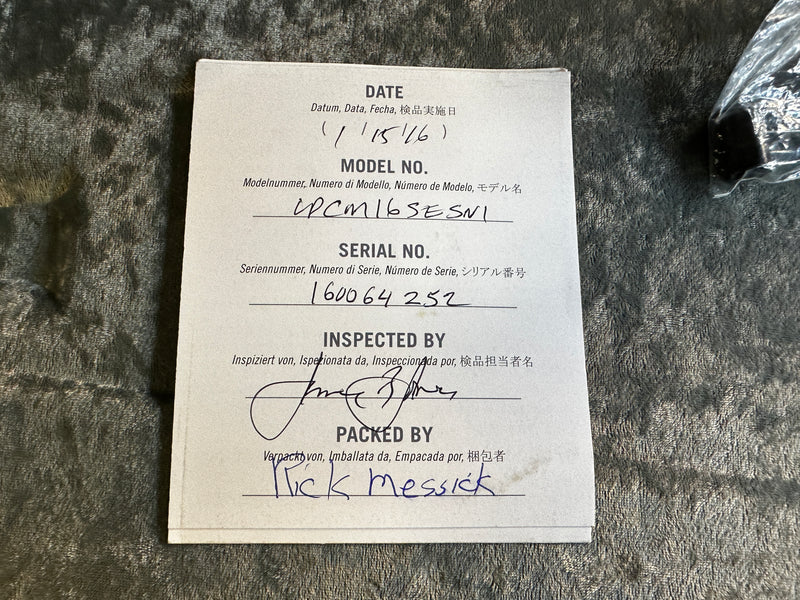 DATE
Datum, Data, Fecha, 検品実施日
(1/15/16)
MODEL NO.
Modelnummer, Numero di Modello, Número de Modelo, モデル名
LPCM16SESN1
SERIAL NO.
Seriennummer, Numero di Serie, Número de Serie, シリアル番号
160064252
INSPECTED BY
Inspiziert von, Ispezionata da, Inspeccionada por, 検品担当者名
PACKED BY
Verpackt von, Imballata da, Empacada por, 梱包者
Rick Messick